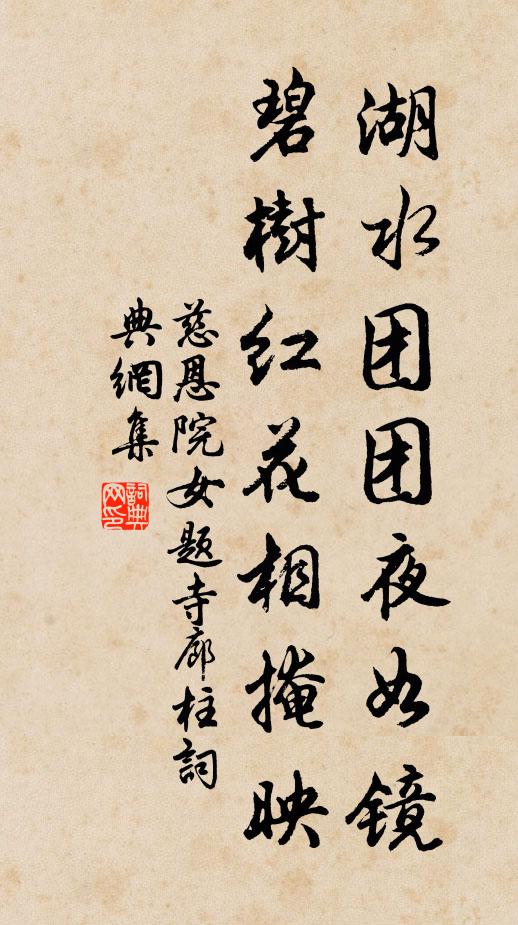 湖水团团夜如镜
碧樹红花相掩映
慈恩院女題寺廊柱詞
典網集
詞典网印